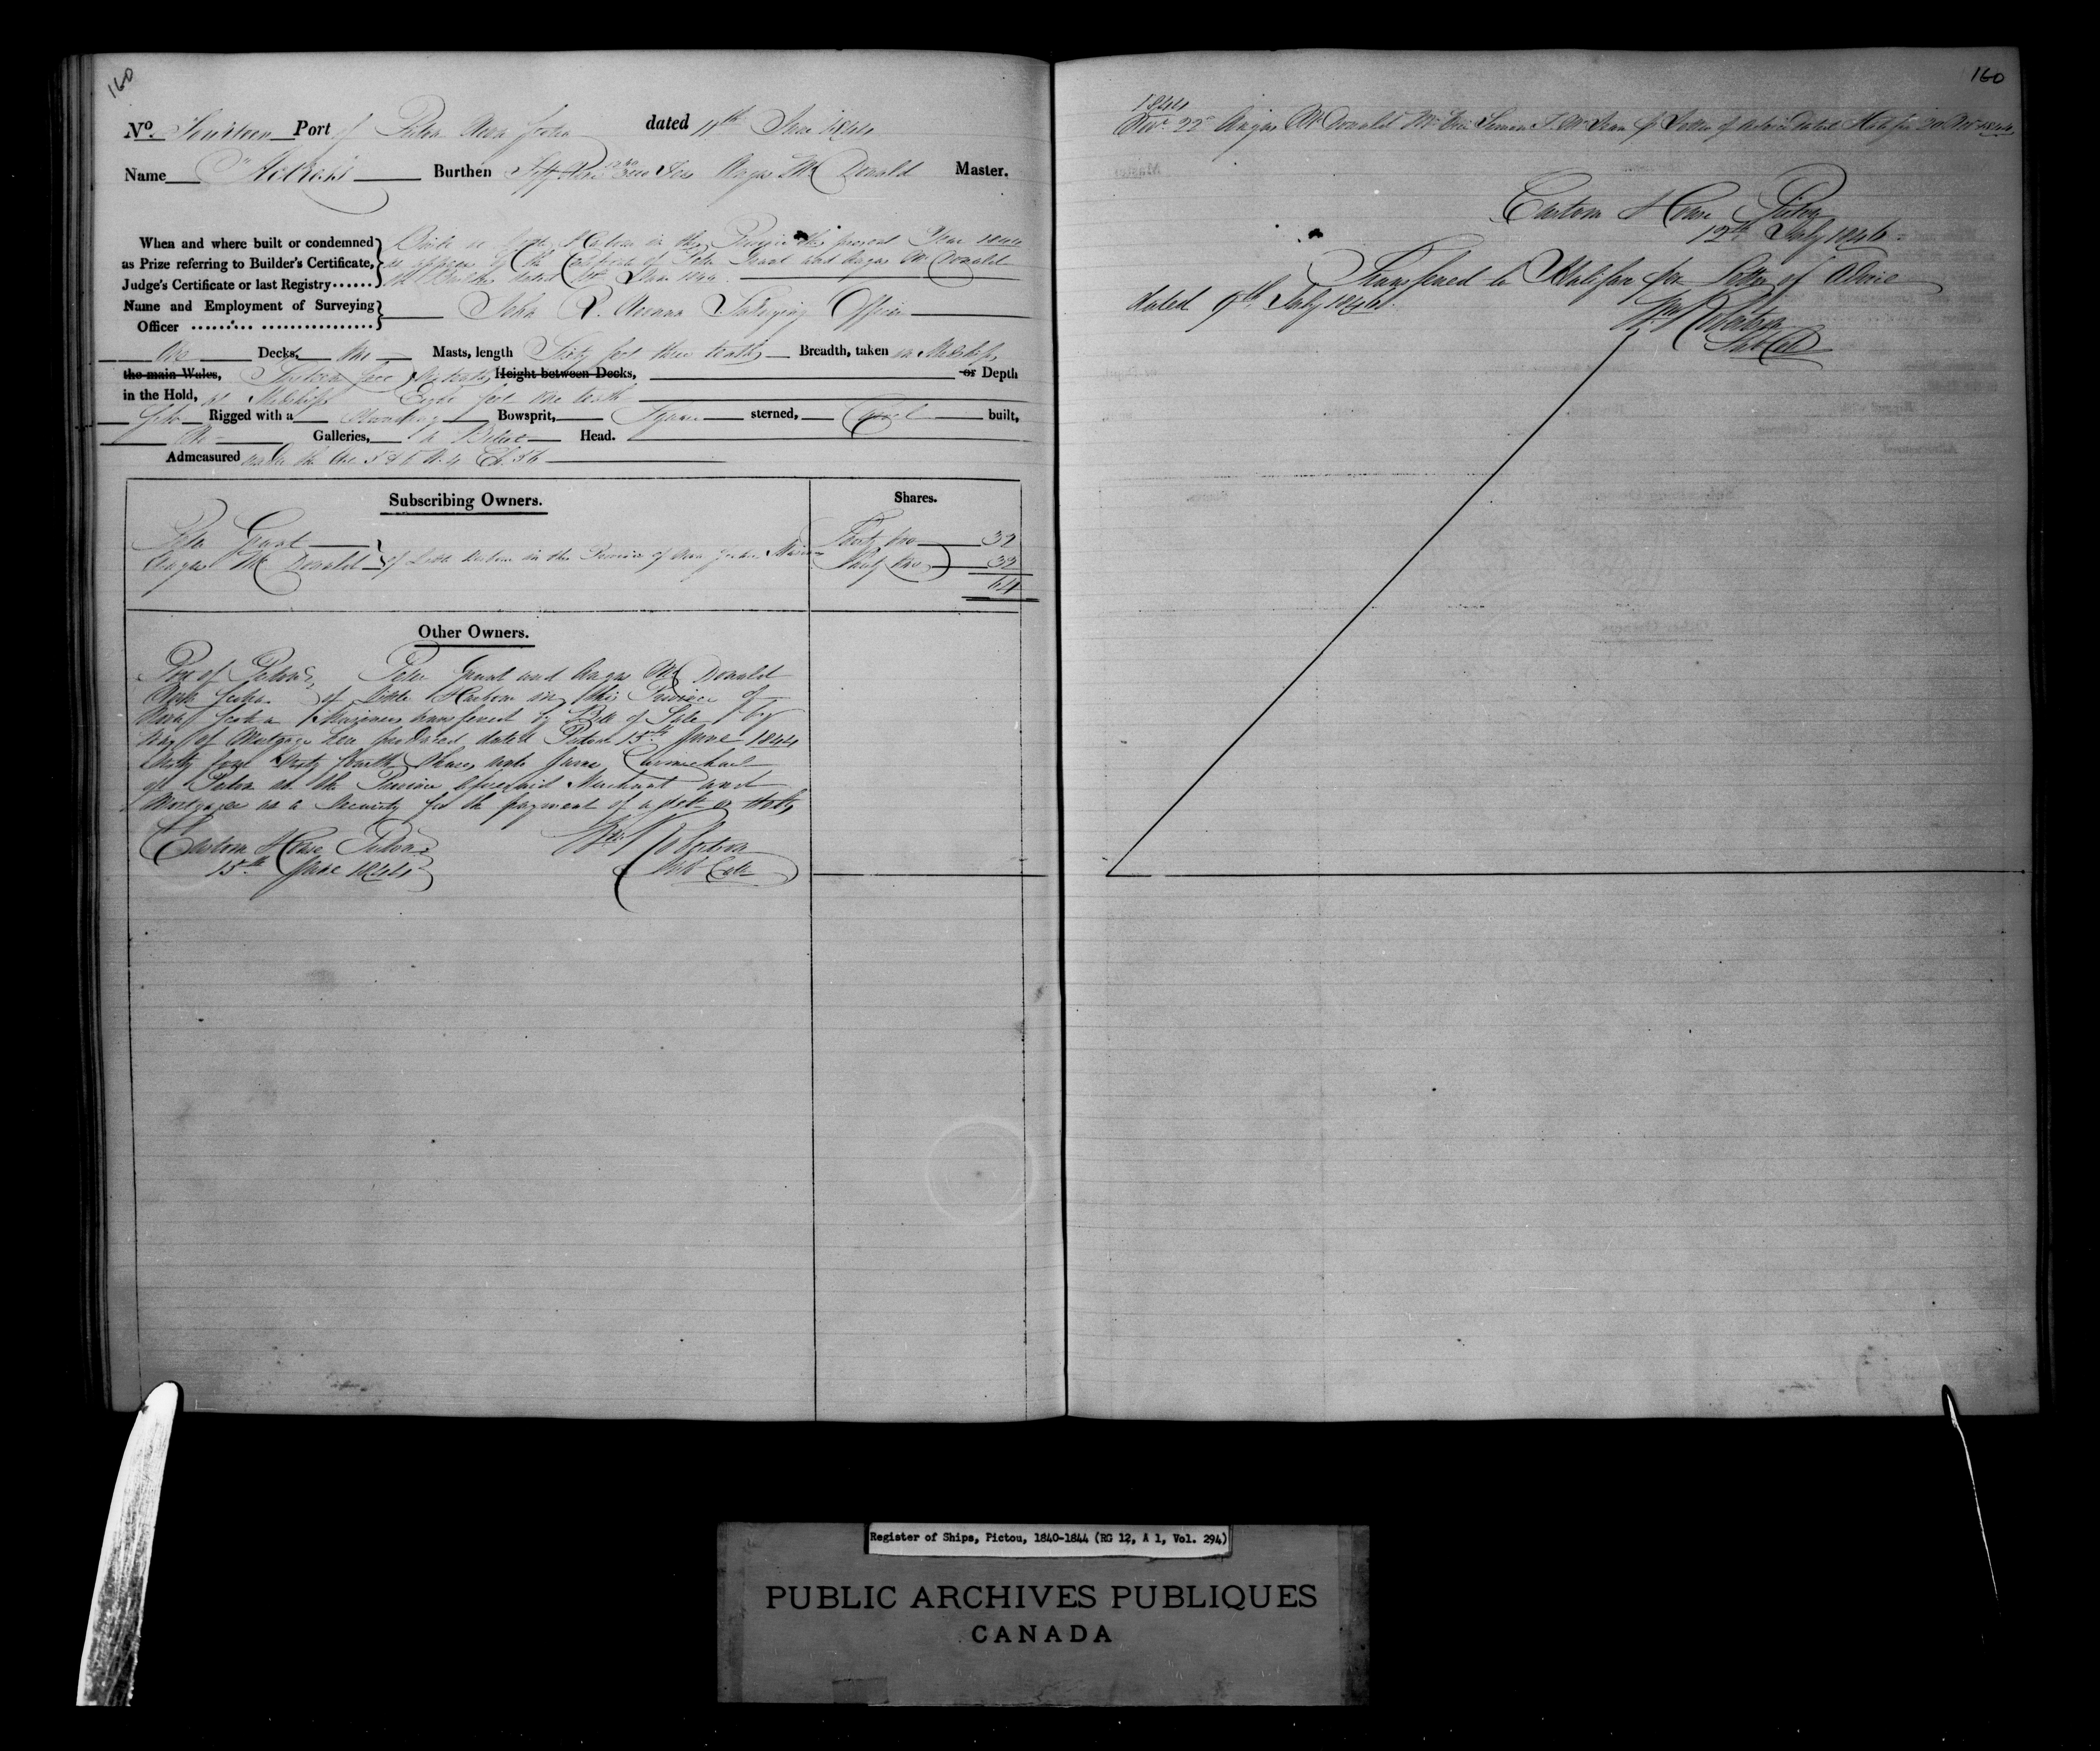 160
No. Fourteen Port of Pictou Nova Scotia dated 11th June 1844
Name Burthen Tons Angus McDonald Master.
When and where built or condemned
as Prize referring to Builder's Certificate,
Judge's Certificate or last Registry......
Built at Little Harbour in this Province the present Year 1844
as appears by the Certificate of Peter Grant and Angus McDonald
the Builders dated June 1844
Name and Employment of Surveying
Officer ........ ................
John Surveying Officer
One Decks, One Masts, length Sixty feet three tenths Breadth, taken in Midships
the main Wales, Height between Decks, or Depth
in the Hold, at Midships Eight feet one tenth
Rigged with a Standing Bowsprit, Square sterned, Carvel built,
No Galleries, a Billet Head.
Admeasured under the Act 5 & 6 W. 4 Ch. 56
Subscribing Owners. Shares.
Peter Grant Thirty two 32
Angus McDonald of Little Harbour in the Province of Nova Scotia Thirty two 32
64
Other Owners.
Port of Pictou Peter Grant and Angus McDonald
Nova Scotia of Little Harbour in this Province of
Nova Scotia Mariners transferred by Bill of Sale by
way of Mortgage here produced dated Pictou 15th June 1844
Sixty four Sixty fourth Shares unto James Carmichael
of Pictou in the Province aforesaid Merchant and
Mortgagee as a Security for the payment of a debt or debts
Custom House Pictou
15th June 1844
Robertson
160
1844
Novr. 22d Angus McDonald Letter of Advice dated Halifax 20 Novr 1844
Custom House Pictou
12th July 1846
Transferred to Halifax per Letter of Advice
dated 9th July 1846
Robertson
Register of Ships, Pictou, 1840-1844 (RG 12, A 1, Vol. 294)
PUBLIC ARCHIVES PUBLIQUES
CANADA